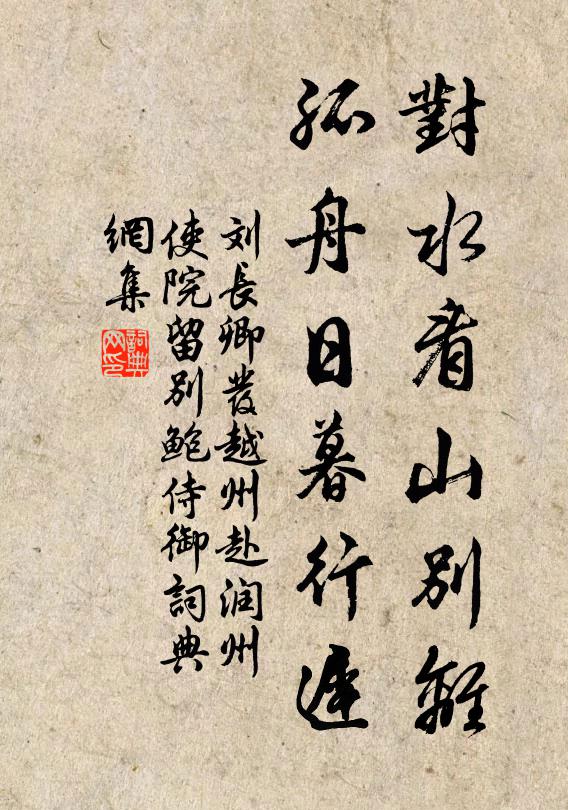 對水看山別離
孤舟日暮行遲
刘長卿發越州赴润州
使院留別鮑侍御詞典
網集
詞典
网印